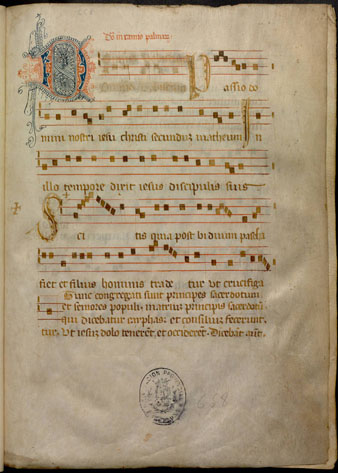 ramis palmaꝝ
Passio do
mini nostri iesu christi secundum matheum In
illo tempore dixit iesus discipulis suis
Sci tis quia post biduum pascha
fiet et filius hominis trade tur ut crucifiga
tur. Tunc congregati sunt principes sacerdotum
et seniores populi. in atrium principis sacerdotum
qui dicebatur cayphas: et consilium fecerunt.
ut iesum dolo tenerent, et occiderent. Dicebant aut.